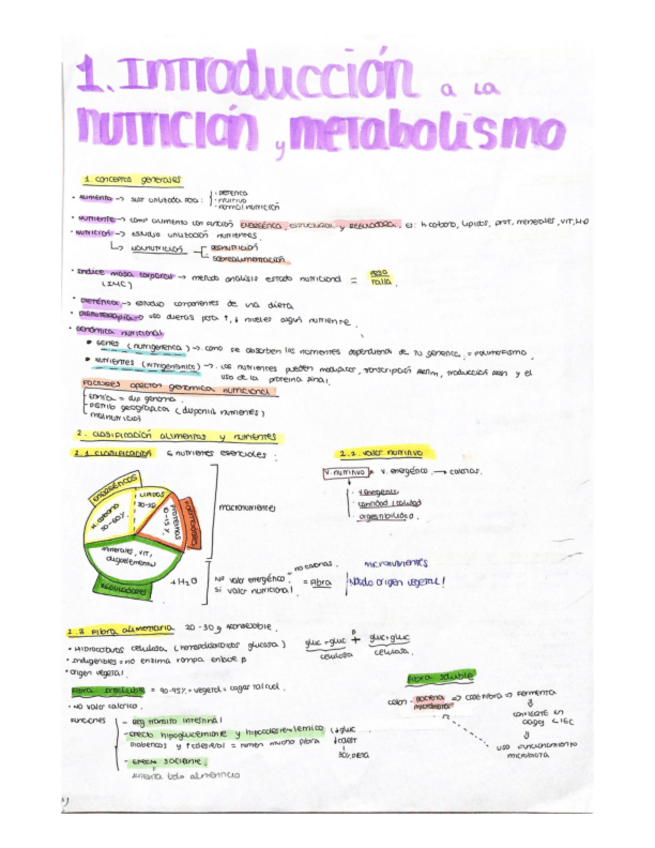 1. Introducción a la
nutrición y metabolismo
1. conceptos generales
• Alimento → sust utilizada para:
• Nutriente → como alimento con función energética, estructural y reguladora, ej: h. carbono, lípidos, prot, minerales, vit, H2O
• Nutrición → estudio utilización nutrientes.
↳ malnutrición
desnutrición
sobrealimentación
• Índice masa corporal → método análisis estado nutricional = peso
(IMC) talla.
• Dietética → estudio componentes de una dieta
• Dietoterapia → uso dietas para ↑, ↓ niveles algún nutriente.
• Genómica nutricional
• Genes (nutrigenética) → como se absorben los nutrientes dependiendo de tu genética. = polimorfismo.
• Nutrientes → los nutrientes pueden modular, transcripción, traducción y el
uso de la proteína final.
Factores afectan genómica nutricional
distrib geográfica (disponib nutrientes)
malnutrición
2. clasificación alimentos y nutrientes
2.1 clasificación 6 nutrientes esenciales:
2.2. valor nutritivo
V. nutritivo ≠ v. energético. → calorías.
v. energético
cantidad / calidad
digestibilidad.
energéticos
h. carbono
50-60%
lípidos
proteínas
minerales, vit,
oligoelementos
reguladores
macronutrientes
+ H2O
No valor energético.
sí valor nutricional
no calorías.
= fibra
micronutrientes
¡Nado origen vegetal!
2.3 Fibra alimentaria 20-30g aconsejable.
• Hidrocarburos celulosa (homopolisacárido glucosa)
gluc-gluc + gluc-gluc
β
celulosa celulosa.
• Indigeribles = no enzima rompa enlace β
• origen vegetal.
Fibra insoluble = 90-95% = vegetal = cagar tal cual.
• No valor calórico.
Funciones
- reg tránsito intestinal
- efecto hipoglucemiante y hipocolesterolémico (↓ gluc
diabéticos y ↑ colesterol = tomen mucha fibra ↓ colest
- efecto saciante.
aumenta bolo alimenticio
Fibra soluble
colon - bacteria => come fibra => fermenta
microbiota
convierte en
uso funcionamiento
microbiota